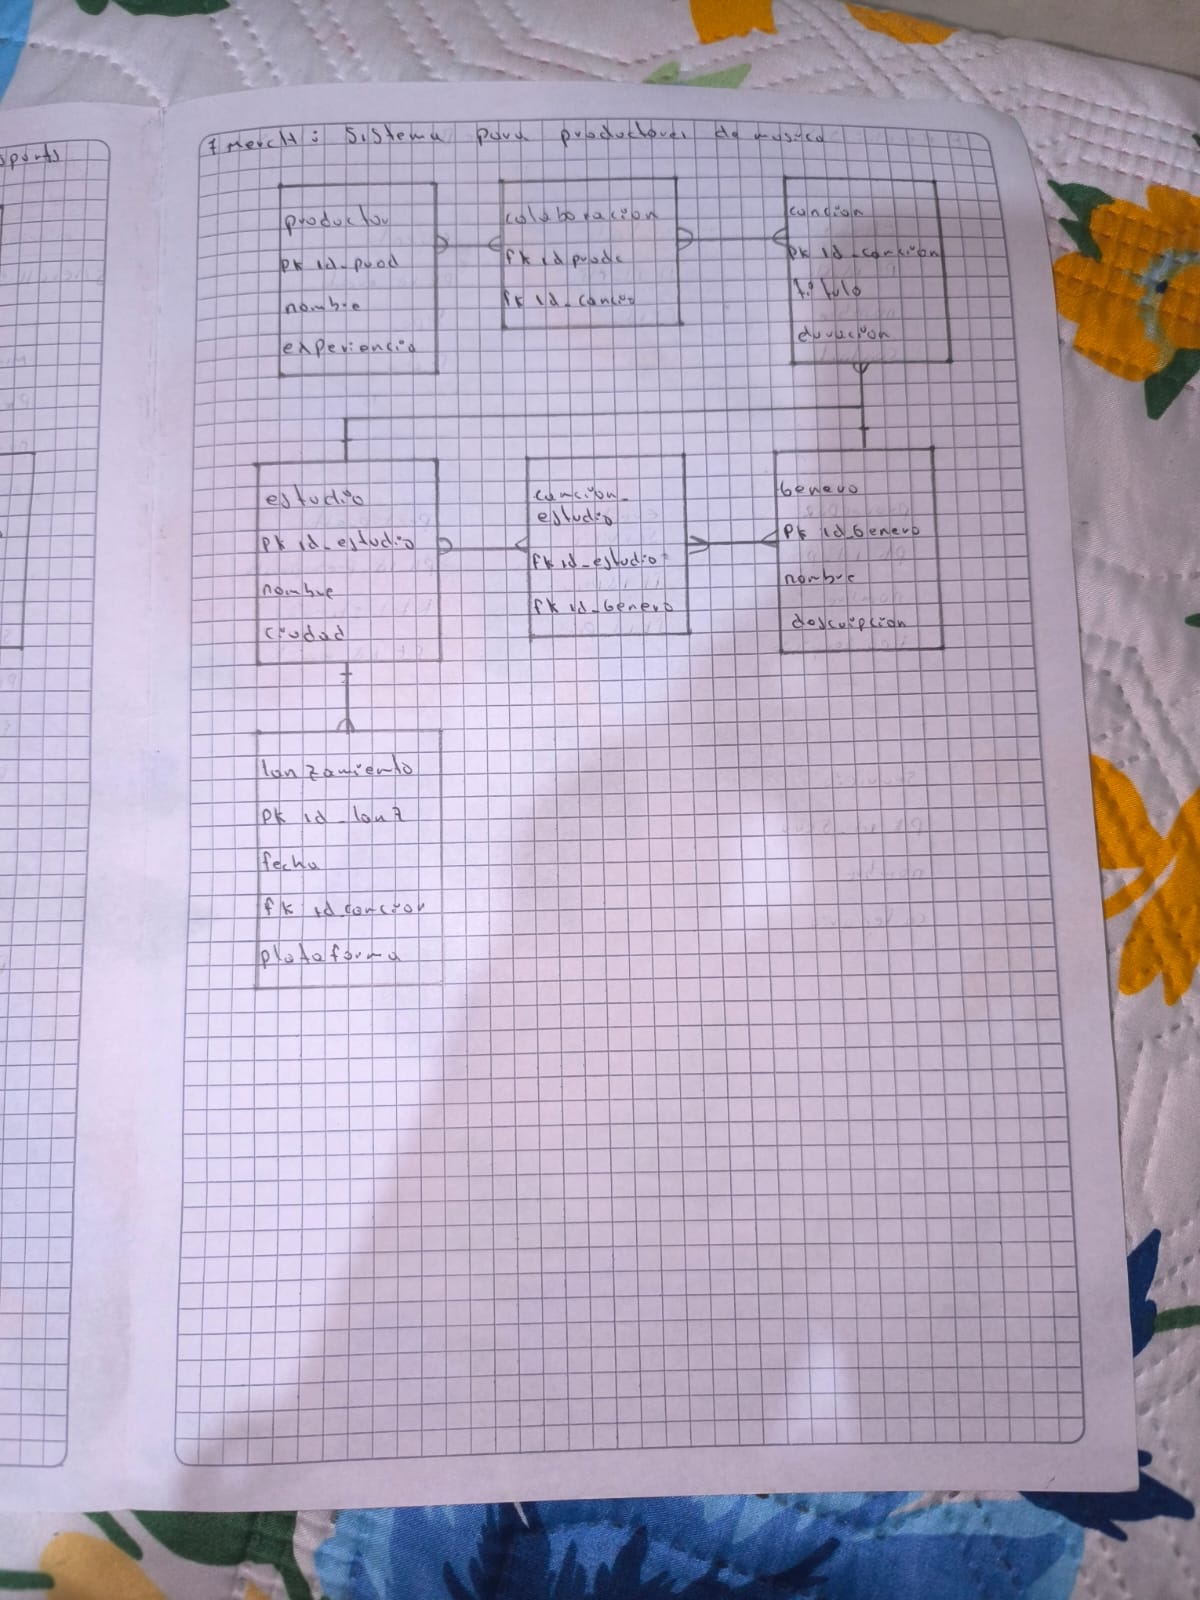 sports
7 Merch: Sistema para productores de musica
productor
PK id_prod
nombre
experiencia
colaboracion
fk id prodc
fk id_cancio
cancion
PK id_canción
titulo
duracion
estudio
PK id_estudio
nombre
ciudad
canción_
estudio
fk id_estudio
fk id_Genero
Genero
PK id_Genero
nombre
descripcion
lanzamiento
PK id_lanz
fecha
fk id cancion
plataforma